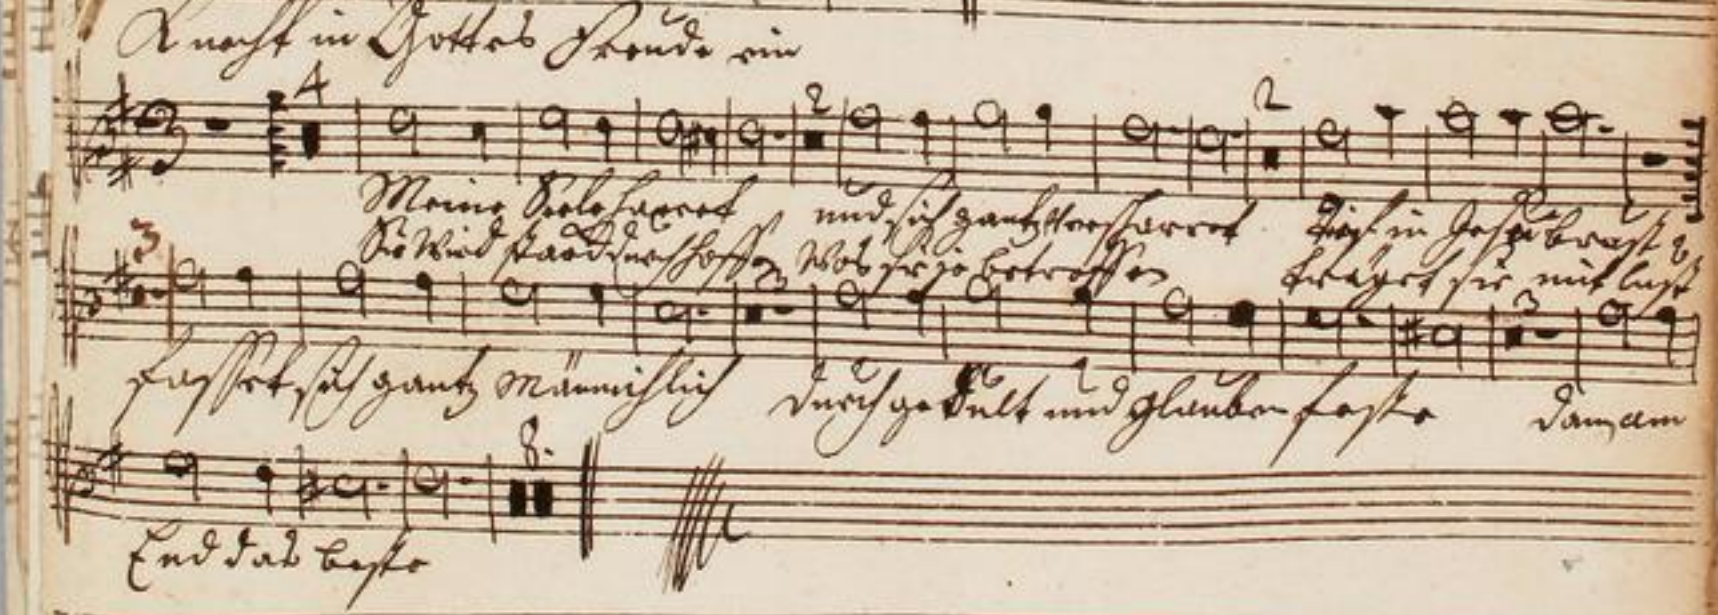 Knecht in Gottes Freude ein
4 2 2
Meine Seele harret und sich gantz verscharret Tief in Jesu brust
Sie wird starck durch hoffen Was sie je betroffen träget sie mit lust
3 3 3
fasset sich gantz Männichlich durch gedult und glauben feste dann am
8.
End das beste